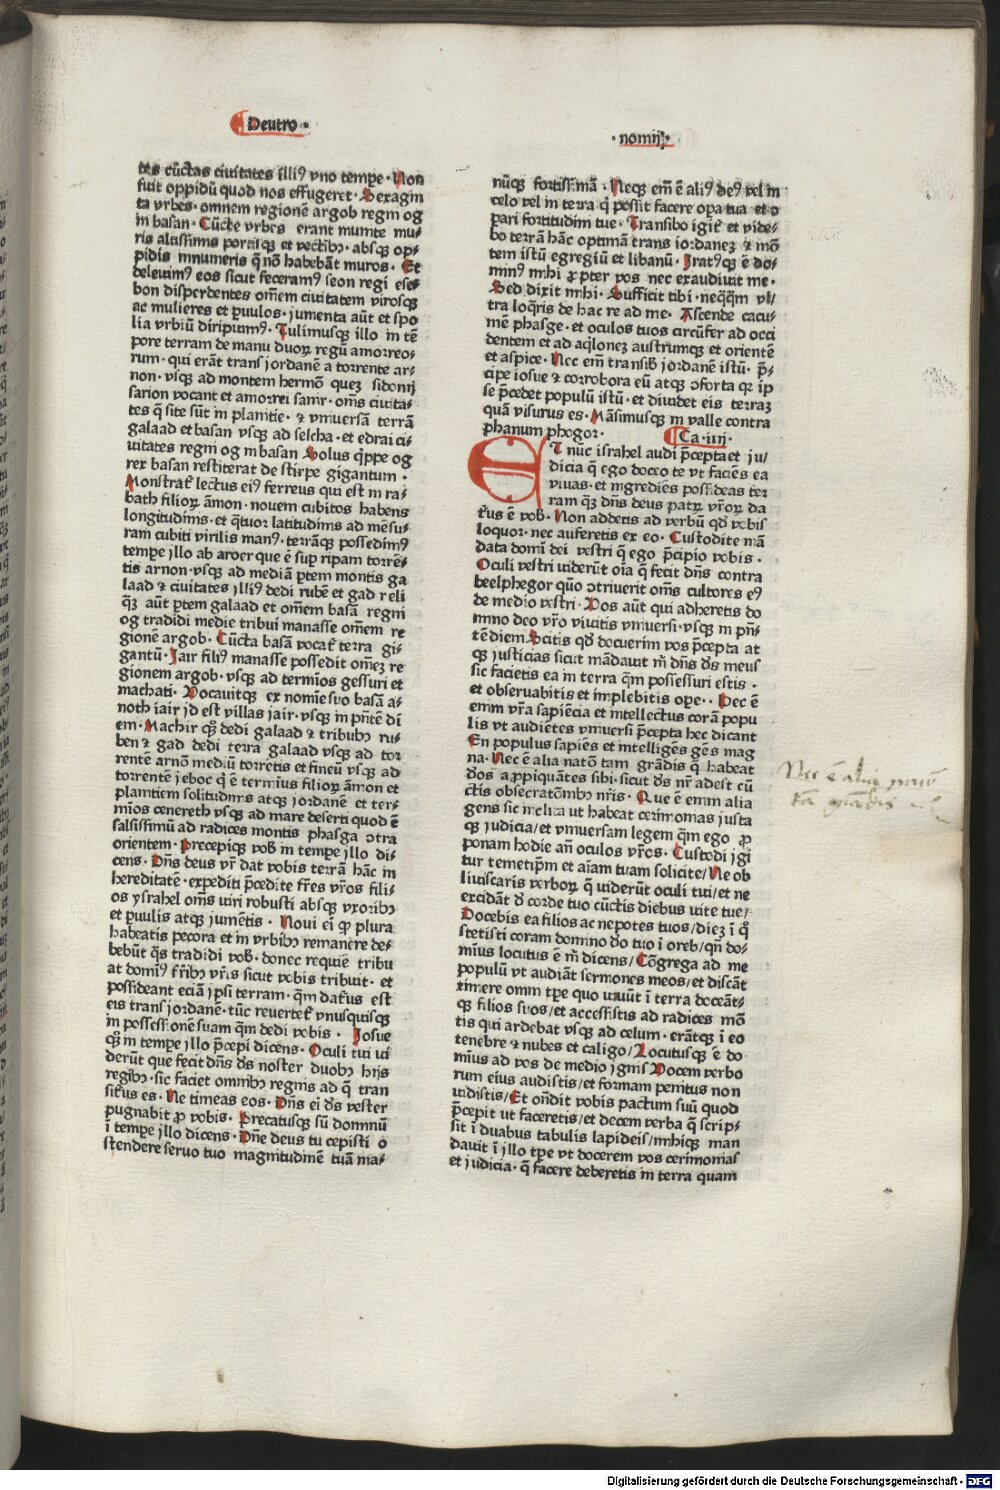 Deutro·
·nomij·
tes cūctas ciuitates illiꝰ vno tempe·Non
fuit oppidū quod nos effugeret·Sexagin
ta vrbes·omnem regionē argob regni og
in basan·Cūcte vrbes erant munite mu-
ris altissimis portisqꝫ et vectibꝫ·absqꝫ op-
pidis innumeris q̄ nō habebāt muros·Et
deleuimꝰ eos sicut feceramꝰ seon regi ese-
bon disperdentes om̄em ciuitatem virosqꝫ
ac mulieres et ꝑuulos·jumenta aūt et spo
lia vrbiū diripuimꝰ·Tulimusqꝫ illo in tē
pore terram de manu duoꝝ regū amorreo-
rum·qui erāt trans jordanē a torrente ar-
non·vsqꝫ ad montem hermō quez sidonij
sarion vocant et amorrei sanir·om̄s ciuita-
tes q̄ site sūt in planitie·⁊ vniuersā terrā
galaad et basan vsqꝫ ad selcha·et edrai ci-
uitates regni og in basan Solus q̄ppe og
rex basan restiterat de stirpe gigantum·
Monstrat̄ lectus eiꝰ ferreus qui est in ra-
bath filioꝝ āmon·nouem cubitos habens
longitudinis·et q̄tuor latitudinis ad mēsu-
ram cubiti virilis manꝰ·terrāqꝫ possedimꝰ
tempe jllo ab aroer que ē suꝑ ripam torrē-
tis arnon·vsqꝫ ad mediā ꝑtem montis ga
laad ⁊ ciuitates jlliꝰ dedi rubē et gad reli
q̄ꝫ aūt ꝑtem galaad et om̄em basā regni
og tradidi medie tribui manasse om̄em re
gionē argob·Cūcta basā vocat̄ terra gi-
gantū·Jair filiꝰ manasse possedit om̄eꝫ re
gionem argob·vsqꝫ ad termīos gessuri et
machati·Vocauitqꝫ ex nomīe suo basā a-
noth iair jd est villas jair·vsqꝫ in pn̄tē di
em·Machir qꝫ dedi galaad ⁊ tribubꝫ ru-
ben ⁊ gad dedi terra galaad vsqꝫ ad tor
rentē arnō mediū torrētis et fineū vsqꝫ ad
torrentē jeboc q̄ ē termīus filioꝝ āmon et
planitiem solitudinis atqꝫ jordanē et ter-
mīos cenereth vsqꝫ ad mare deserti quod ē
salsissimū ad radices montis phasga ↄtra
orientem·Precepiqꝫ vob̄ in tempe jllo di-
cens·Dn̄s deus vr̄ dat vobis terrā hāc in
hereditatē·expediti p̄cedite fr̄es vr̄os fili-
os ysrahel om̄s viri robusti absqꝫ vxoribꝫ
et ꝑuulis atqꝫ jumētis·Noui ei qꝫ plura
habeatis pecora et in vrbibꝫ remanere de-
bebūt q̄s tradidi vob̄·donec requiē tribu
at domiꝰ fr̄ibꝫ vr̄is sicut vobis tribuit·et
possideant eciā jpsi terram·q̄m datꝰ est
eis trans jordanē·tūc reuertet̄ vnusquisqꝫ
in possessionē suam q̄m dedi vobis·Josue
qꝫ in tempe jllo p̄cepi dicens·Oculi tui vi
derūt que fecit dn̄s d̄s noster duobꝫ hijs
regibꝫ·sic faciet omnibꝫ regnis ad q̄ tran
situs es·Ne timeas eos·Dn̄s ei d̄s vester
pugnabit ꝓ vobis·Precatusqꝫ sū dominū
ī tempe jllo dicens·Dn̄e deus tu cepisti o
stendere seruo tuo magnitudinē tuā ma-
nūqꝫ fortissimā·Neqꝫ em̄ ē aliꝰ deꝰ vel in
celo vel in terra q̄ possit facere opa tua et ↄ
pari fortitudini tue·Transibo igit̄ et vide-
bo terrā hāc optimā trans jordaneꝫ ⁊ mō
tem istū egregiū et libanū·Iratꝰqꝫ ē do-
minꝰ mihi ꝓpter vos nec exaudiuit me·
Sed dixit mihi·Sufficit tibi·neq̄q̄m vl/
tra loq̄ris de hac re ad me·Ascende cacu-
mē phasge·et oculos tuos circūfer ad occi
dentem et ad aq̄loneꝫ austrumqꝫ et orientē
et aspice·Nec em̄ transib̄ jordanē istū·p̄-
cipe iosue ⁊ corrobora eū atqꝫ ↄforta qꝛ ip
se p̄cedet populū istū·et diuidet eis terraꝫ
quā visurus es·Māsimusqꝫ in valle contra
phanum phogor·
Ca·iiij·
ET nūc israhel audi p̄cepta et ju/
dicia q̄ ego doceo te vt faciēs ea
viuas·et ingrediēs possideas ter
ram q̄ꝫ dn̄s deus patꝝ vr̄oꝝ da
tꝰs ē vob̄·Non addetis ad verbū qd̄ vobis
loquor·nec auferetis ex eo·Custodite mā
data domī dei vestri q̄ ego p̄cipio vobis·
Oculi vestri viderūt oīa q̄ fecit dn̄s contra
beelphegor quō ↄtriuerit om̄s cultores eꝰ
de medio vestri·Vos aūt qui adheretis do
mino deo vr̄o viuitis vniuersi·vsqꝫ in pn̄-
tē diem Scitis qd̄ docuerim vos p̄cepta at
qꝫ justicias sicut mādauit m̄ dn̄s d̄s meus
sic facietis ea in terra q̄m possessuri estis·
et obseruabitis et implebitis ope··Hec ē
enim vr̄a sapiēcia et intellectus corā popu
lis vt audiētes vniuersi p̄cepta hec dicant
En populus sapiēs et intelligēs gēs mag
na·Nec ē alia natō tam grādis q̄ habeat
d̄os appīquātes sibi·sicut d̄s nr̄ adest cū
ctis obsecratōnibꝫ nr̄is·Que ē enim alia
gens sic inclita ut habeat cerimonias justa
qꝫ judicia/et vniuersam legem q̄m ego ꝓ
ponam hodie an̄ oculos vr̄os·Custodi jgi
tur temetip̄m et aīam tuam solicite/Ne ob
liuiscaris verboꝝ q̄ viderūt oculi tui/et ne
excidāt d̄ corde tuo cūctis diebus vite tue/
Docebis ea filios ac nepotes tuos/dieꝫ ī q̄
stetisti coram domino d̄o tuo ī oreb/qn̄ do-
mīus locutus ē m̄ dicens/Cōgrega ad me
populū vt audiāt sermones meos/et discāt
timere omni tp̄e quo uiuūt ī terra doceāt-
qꝫ filios suos/et accessistis ad radices mō
tis qui ardebat vsqꝫ ad celum·erātqꝫ ī eo
tenebre ⁊ nubes et caligo/Locutusqꝫ ē do
mīus ad vos de medio jgnis Vocem verbo
rum eius audistis/et formam penitus non
uidistis/Et on̄dit vobis pactum suū quod
p̄cepit ut faceretis/et decem verba q̄ scrip-
sit ī duabus tabulis lapideis/mihiqꝫ man
dauit ī jllo tp̄e vt docerem vos cerimonias
et judicia·q̄ facere deberetis in terra quam
Nec ē alia natio
tā grādis
Digitalisierung gefördert durch die Deutsche Forschungsgemeinschaft - DFG